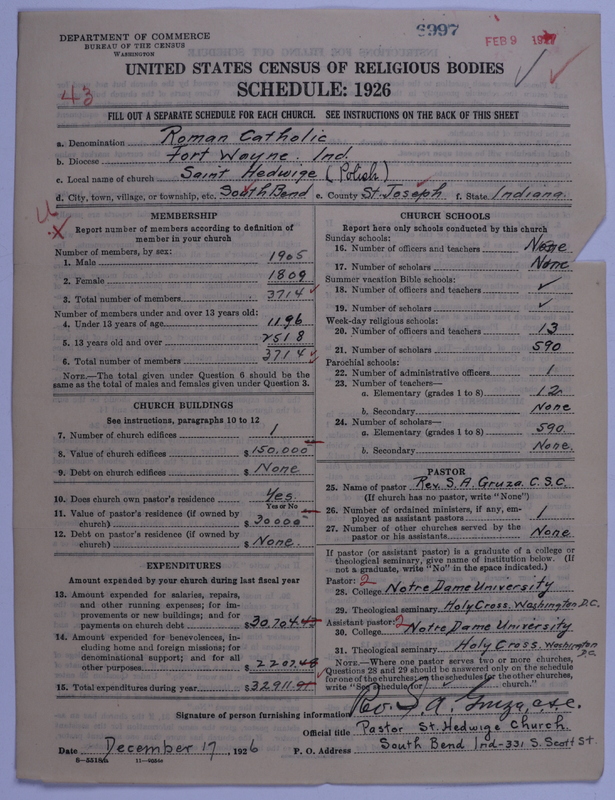 6997
FEB 9 1927
DEPARTMENT OF COMMERCE
BUREAU OF THE CENSUS
WASHINGTON
UNITED STATES CENSUS OF RELIGIOUS BODIES
SCHEDULE: 1926
43
FILL OUT A SEPARATE SCHEDULE FOR EACH CHURCH. SEE INSTRUCTIONS ON THE BACK OF THIS SHEET
a. Denomination Roman Catholic
b. Diocese Fort Wayne. Ind.
c. Local name of church Saint Hedwige (Polish)
d. City, town, village, or township, etc. South Bend e. County St. Joseph f. State Indiana
MEMBERSHIP
Report number of members according to definition of
member in your church
Number of members, by sex:
1. Male 1905
2. Female 1809
3. Total number of members 3714
Number of members under and over 13 years old:
4. Under 13 years of age 1196
5. 13 years old and over 2518
6. Total number of members 3714
NOTE.—The total given under Question 6 should be
same as the total of males and females given under Question 3.
CHURCH BUILDINGS
See instructions, paragraphs 10 to 12
7. Number of church edifices 1
8. Value of church edifices $150.000
9. Debt on church edifices $ None
10. Does church own pastor's residence Yes
Yes or No
11. Value of pastor's residence (if owned by
church) $30000
12. Debt on pastor's residence (if owned by
church) $ None.
EXPENDITURES
Amount expended by your church during last fiscal year
13. Amount expended for salaries, repairs,
and other running expenses; for im-
provements or new buildings; and for
payments on church debt $30,704.
14. Amount expended for benevolences, in-
cluding home and foreign missions; for
denominational support; and for all
other purposes $2207.
15. Total expenditures during year $32911.
CHURCH SCHOOLS
Report here only schools conducted by this church
Sunday schools:
16. Number of officers and teachers None
17. Number of scholars None
Summer vacation Bible schools:
18. Number of officers and teachers ✓
19. Number of scholars ✓
Week-day religious schools:
20. Number of officers and teachers 13
21. Number of scholars 590
Parochial schools:
22. Number of administrative officers 1
23. Number of teachers—
a. Elementary (grades 1 to 8) 12
b. Secondary None
24. Number of scholars—
a. Elementary (grades 1 to 8) 590
b. Secondary None.
PASTOR
25. Name of pastor Rev. S. A. Gruza. C.S.C.
(If church has no pastor, write "None")
26. Number of ordained ministers, if any, em-
ployed as assistant pastors 1
27. Number of other churches served by the
pastor or his assistants None
If pastor (or assistant pastor) is a graduate of a college or
theological seminary, give name of institution below. (If
not a graduate, write "No" in the space indicated.)
Pastor: 2
28. College Notre Dame University
29. Theological seminary Holy Cross. Washington D.C.
Assistant pastor: 2
30. College Notre Dame University
31. Theological seminary Holy Cross. Washington D.C.
NOTE.—Where one pastor serves two or more churches,
Questions 28 and 29 should be answered only on the schedule
for one of the churches; on the schedules for the other churches,
write "See schedule for church."
Signature of person furnishing information Rev. S. A. Gruza, c.s.c.
Official title Pastor St. Hedwige Church.
Date December 17, 1926 P. O. Address South Bend Ind-331 S. Scott St.